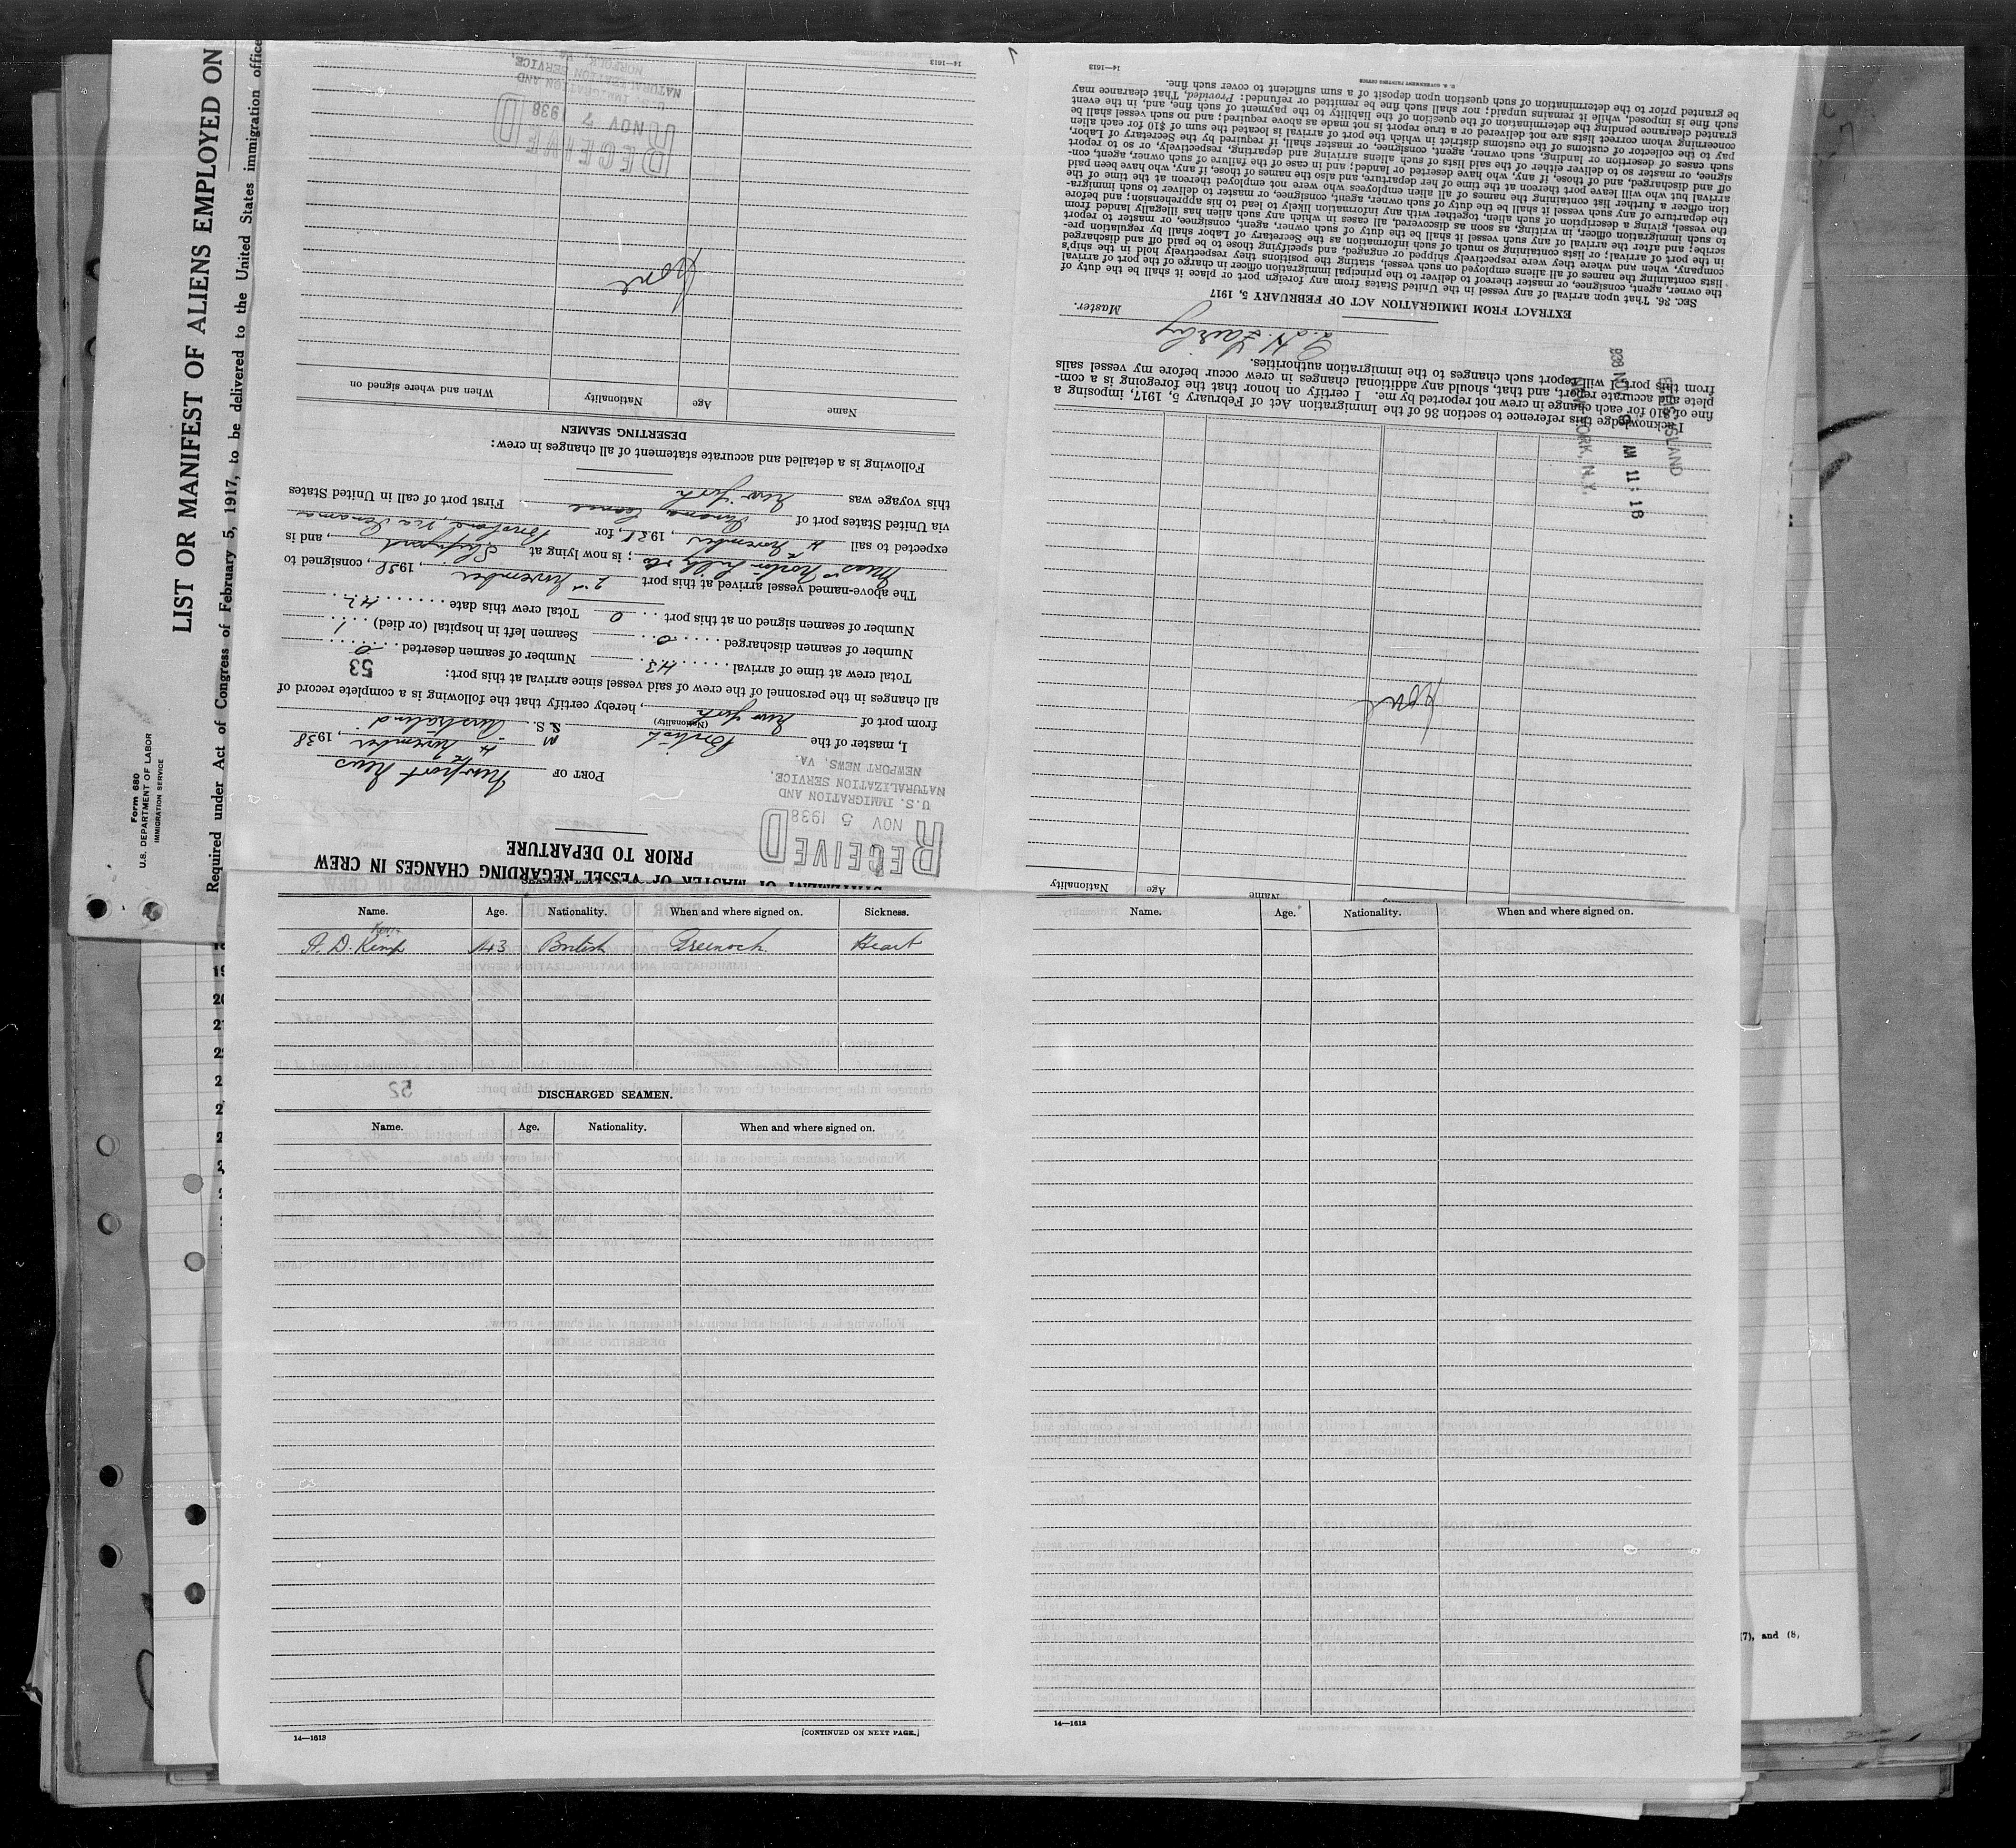 LIST OR MANIFEST OF ALIENS EMPLOYED ON
Required under Act of Congress of February 5, 1917, to be delivered to the United States immigration office
Form 680
U.S. DEPARTMENT OF LABOR
IMMIGRATION SERVICE
PRIOR TO DEPARTURE
OF MASTER OF VESSEL REGARDING CHANGES IN CREW
RECEIVED
NOV 5 1938
U.S. IMMIGRATION AND
NATURALIZATION SERVICE,
NEWPORT NEWS, VA.
PORT OF Newport News
4th November, 1938
I, master of the British M S. S. Australind
(Nationality)
from port of New York, hereby certify that the following is a complete record of
all changes in the personnel of the crew of said vessel since arrival at this port:
53
Total crew at time of arrival 43. Number of seamen deserted 0
Number of seamen discharged 0. Seamen left in hospital (or died) 1
Number of seamen signed on at this port 0 Total crew this date 42
The above-named vessel arrived at this port 2nd November, 1938, consigned to
Mess Norton Lilly & Co; is now lying at Shipyard, and is
expected to sail 4th November, 1938, for Brisbane, via Panama
via United States port of Panama Canal First port of call in United States
this voyage was New York
Following is a detailed and accurate statement of all changes in crew:
DESERTING SEAMEN
Name Age Nationality When and where signed on
None
RECEIVED
NOV 7 1938
U.S. IMMIGRATION AND
NATURALIZATION SERVICE,
NORFOLK, VA.
14—1613
Name Age Nationality
None
I acknowledge this reference to section 36 of the Immigration Act of February 5, 1917, imposing a
fine of $10 for each change in crew not reported by me. I certify on honor that the foregoing is a com-
plete and accurate report, and that, should any additional changes in crew occur before my vessel sails
from this port I will report such changes to the immigration authorities.
Master.
ELLIS ISLAND
938 NOV AM 11:16
NEW YORK, N.Y.
EXTRACT FROM IMMIGRATION ACT OF FEBRUARY 5, 1917
SEC. 36. That upon arrival of any vessel in the United States from any foreign port or place it shall be the duty of
the owner, agent, consignee, or master thereof to deliver to the principal immigration officer in charge of the port of arrival
lists containing the names of all aliens employed on such vessel, stating the positions they respectively hold in the ship's
company, when and where they were respectively shipped or engaged, and specifying those to be paid off and discharged
in the port of arrival; or lists containing so much of such information as the Secretary of Labor shall by regulation pre-
scribe; and after the arrival of any such vessel it shall be the duty of such owner, agent, consignee, or master to report
to such immigration officer, in writing, as soon as discovered, all cases in which any such alien has illegally landed from
the vessel, giving a description of such alien, together with any information likely to lead to his apprehension; and before
the departure of any such vessel it shall be the duty of such owner, agent, consignee, or master to deliver to such immigra-
tion officer a further list containing the names of all alien employees who were not employed thereon at the time of the
arrival but who will leave port thereon at the time of her departure, and also the names of those, if any, who have been paid
off and discharged, and of those, if any, who have deserted or landed; and in case of the failure of such owner, agent, con-
signee, or master so to deliver either of the said lists of such aliens arriving and departing, respectively, or so to report
such cases of desertion or landing, such owner, agent, consignee, or master, shall, if required by the Secretary of Labor,
pay to the collector of customs of the customs district in which the port of arrival is located the sum of $10 for each alien
concerning whom correct lists are not delivered or a true report is not made as above required; and no such vessel shall be
granted clearance pending the determination of the question of the liability to the payment of such fine, and, in the event
such fine is imposed, while it remains unpaid; nor shall such fine be remitted or refunded: Provided, That clearance may
be granted prior to the determination of such question upon deposit of a sum sufficient to cover such fine.
U. S. GOVERNMENT PRINTING OFFICE
14—1613
Name. Age. Nationality. When and where signed on. Sickness.
A. D. Kemp 43 British Greenock. Heart
52
DISCHARGED SEAMEN.
Name. Age. Nationality. When and where signed on.
14—1613
[CONTINUED ON NEXT PAGE.]
Name. Age. Nationality. When and where signed on.
14—1613
(7), and (8,